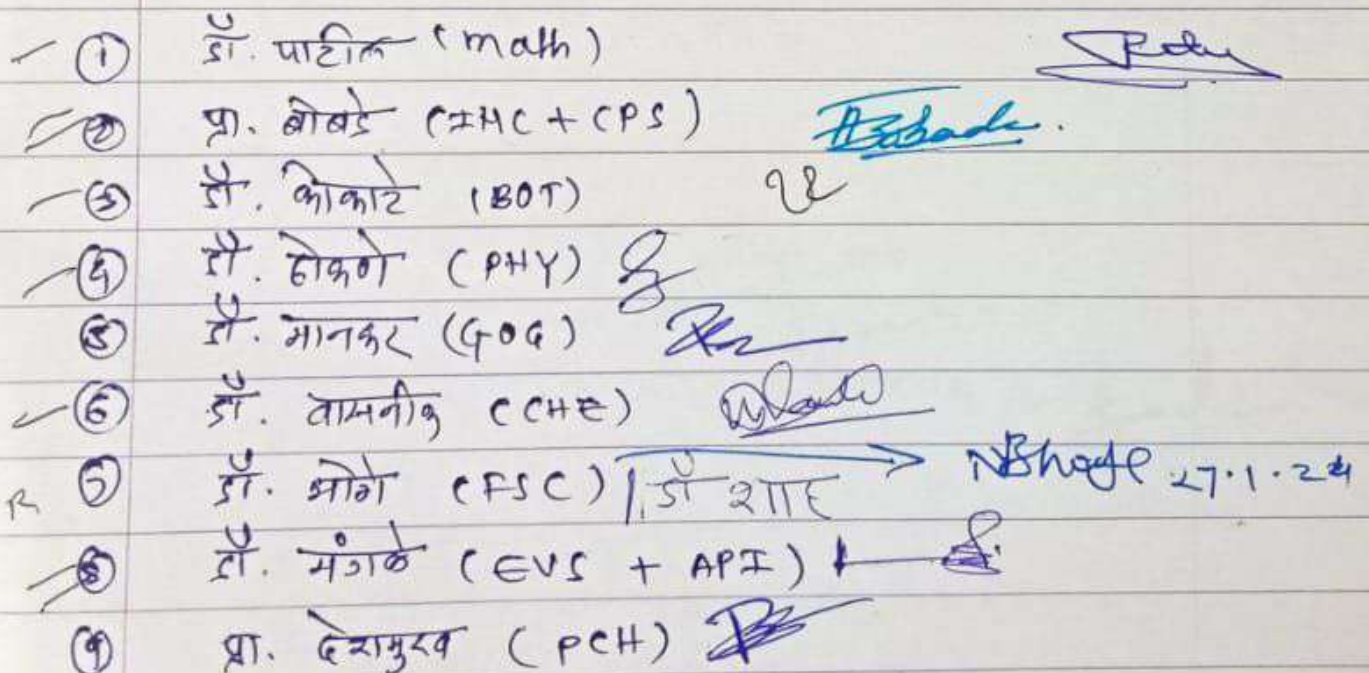 ① डॉ. पाटील (math)
② प्रा. बोबडे (IMC + CPS) ABobade.
③ डॉ. कोकाटे (BOT)
④ डॉ. ढोकणे (PHY)
⑤ डॉ. मानकर (GOG)
⑥ डॉ. वामनीक (CHE)
⑦ डॉ. भोगे (FSC) डॉ शाह NBhoge 27.1.24
⑧ डॉ. मंगळे (EVS + API)
⑨ प्रा. देशमुख (PCH)